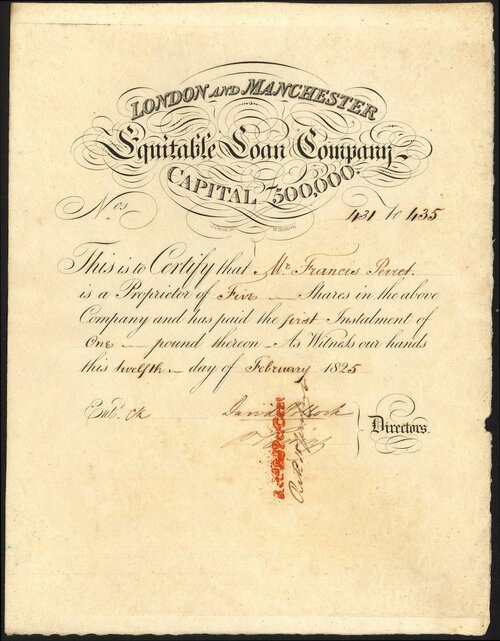 LONDON AND MANCHESTER
Equitable Loan Company
CAPITAL £500,000.
Nos 431 to 435
This is to Certify that Mr. Francis Perret
is a Proprietor of Five Shares in the above
Company and has paid the first Instalment of
One pound thereon - As Witness our hands
this twelfth day of February 1825
Entd.
David Pollock
Directors.